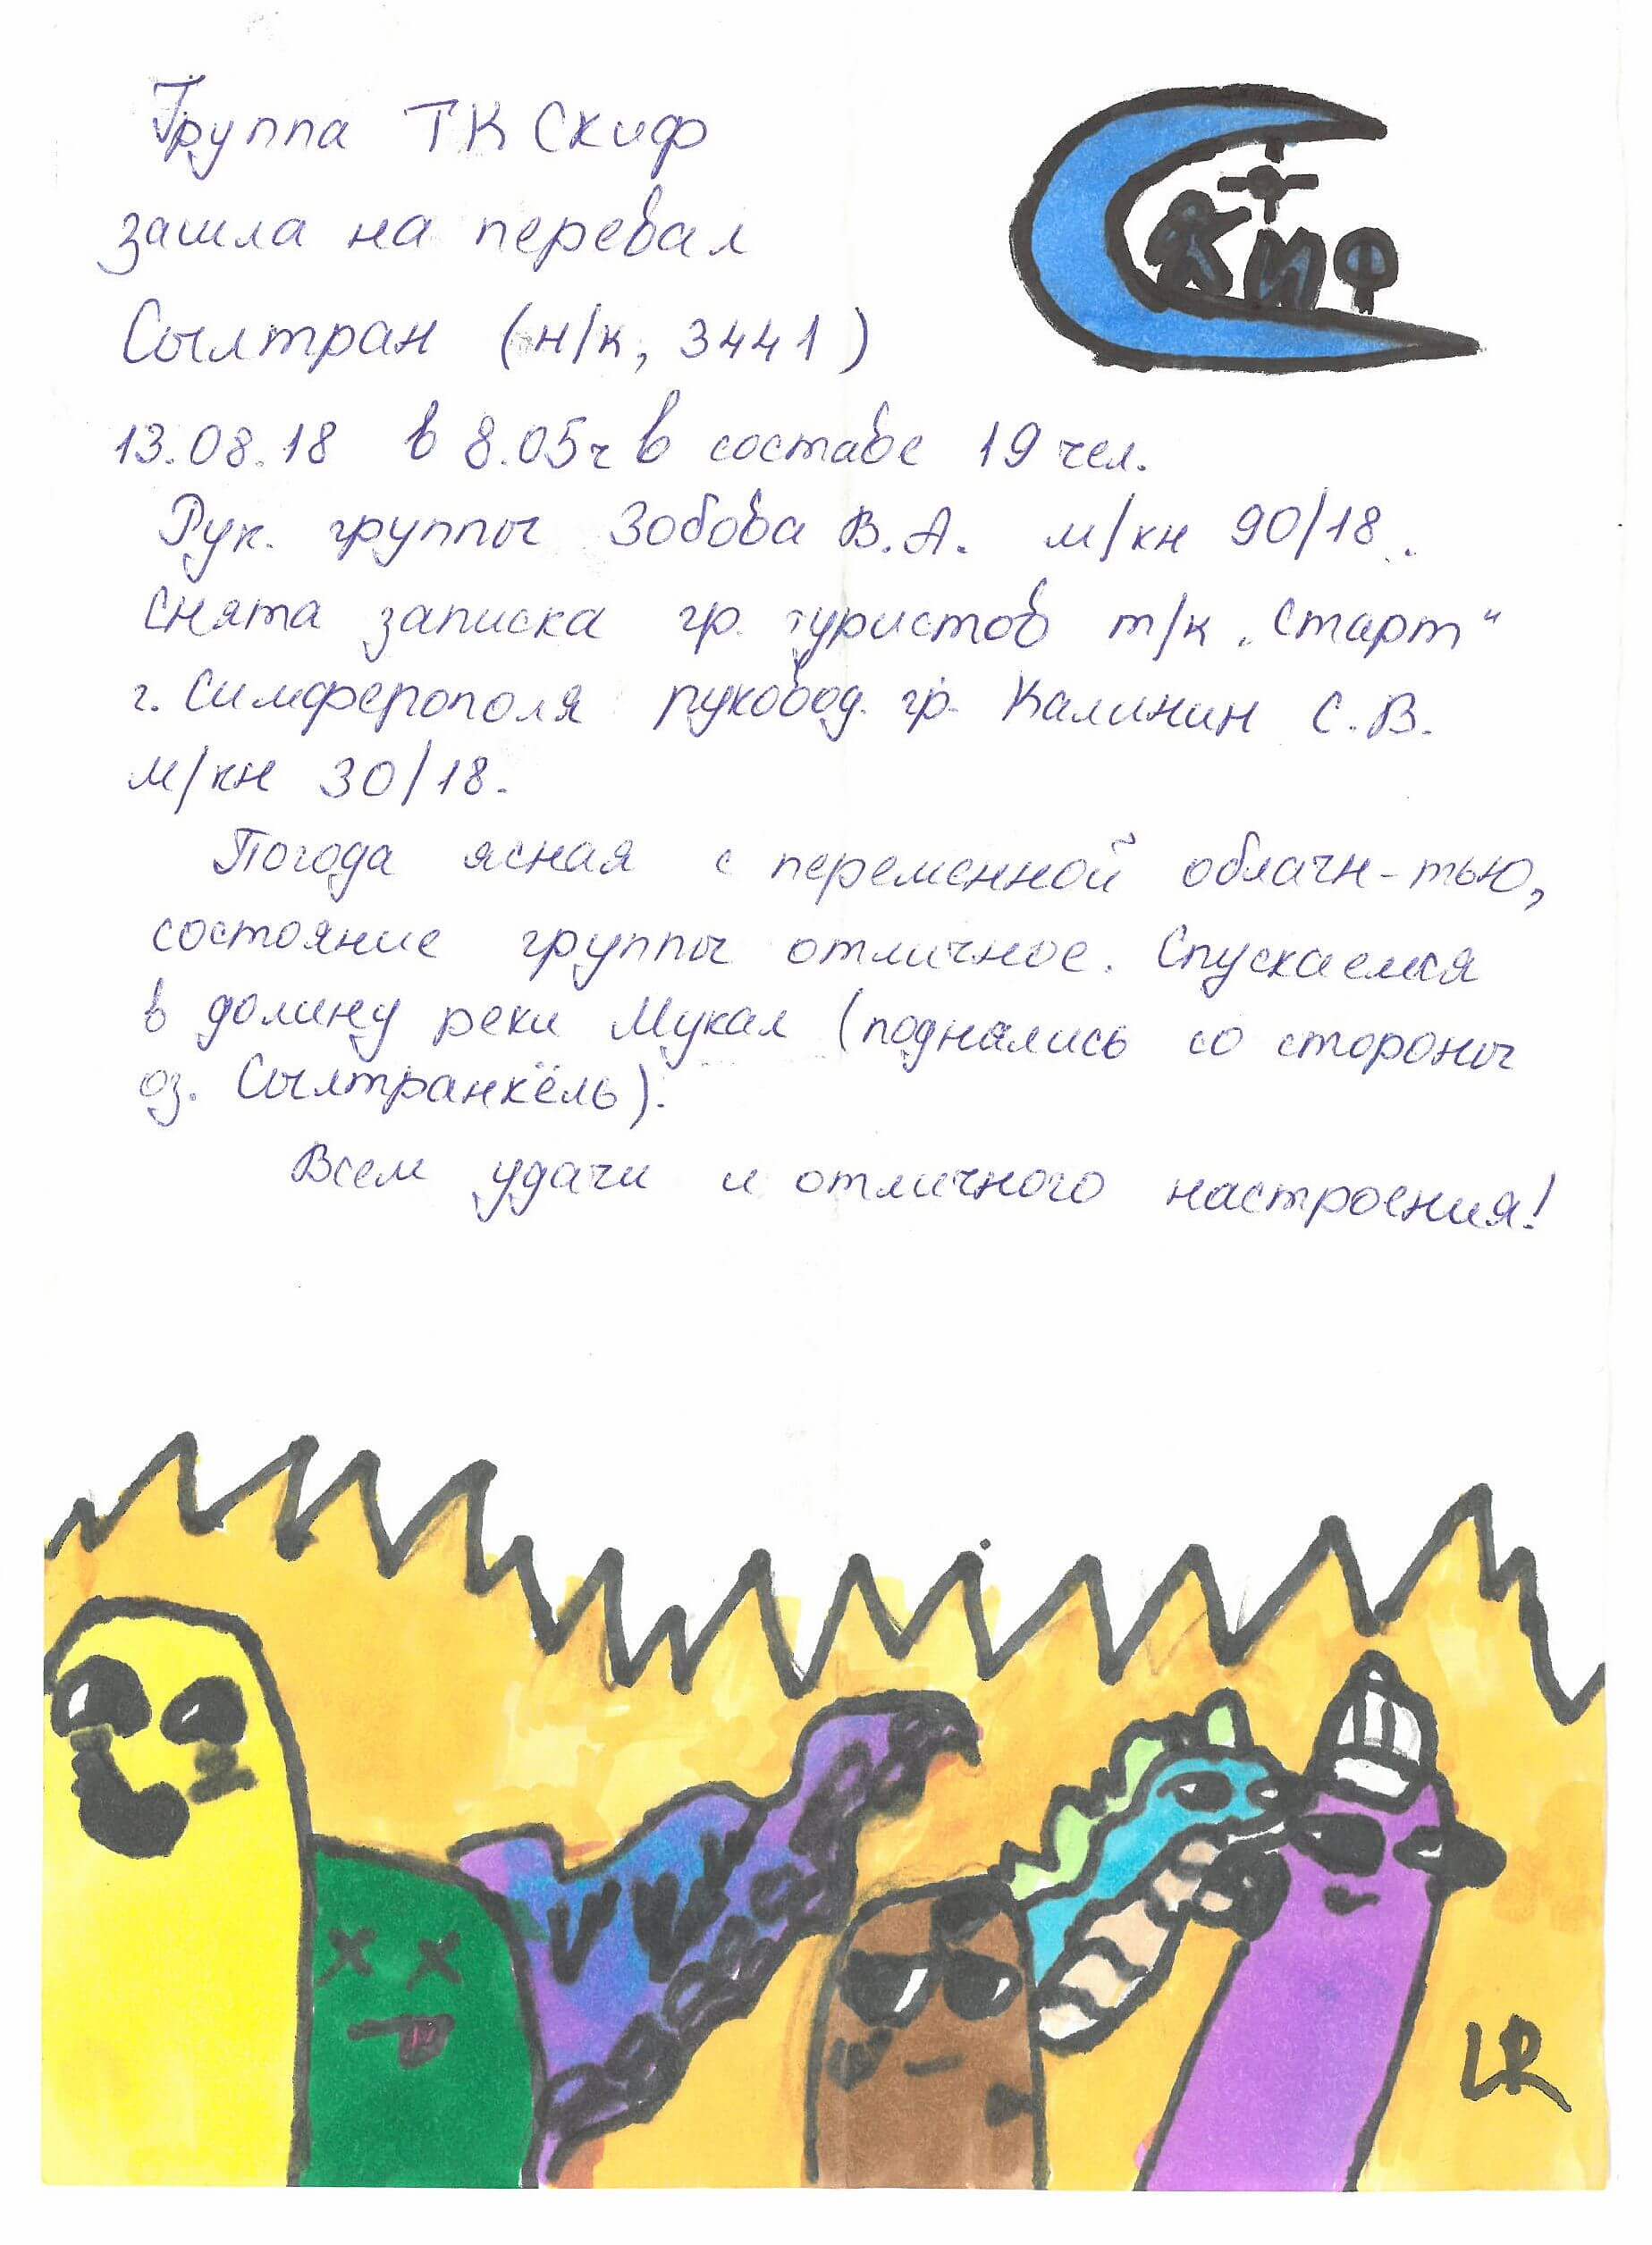 Группа ТК Скиф
Скиф
зашла на перевал
Сылтран (н/к, 3441)
13.08.18 в 8.05ч в составе 19 чел.
Рук. группы Зобова В.А. м/кн 90/18.
Снята записка гр. туристов т/к „Старт“
г. Симферополя руковод. гр. Калинин С.В.
м/кн 30/18.
Погода ясная с переменной облачн-тью,
состояние группы отличное. Спускаемся
в долину реки Мукал (поднялись со стороны
оз. Сылтранкёль).
Всем удачи и отличного настроения!
LR